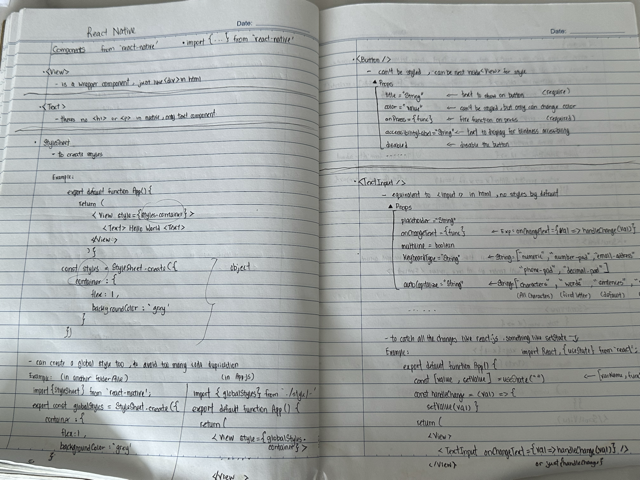 Date:
React Native
Components from 'react-native' • import {...} from 'react-native'
• <View>
- is a wrapper component, just like <div> in html
• <Text>
- theres no <h1> or <p> in native, only text component
• StyleSheet
- to create styles
Example:
export default function App() {
return (
<View style={styles.container}>
<Text> Hello World <Text>
</View>
) }
const styles = StyleSheet.create({
container : {
flex: 1,
backgroundColor : "grey"
}
})
object
- can create a global style too, to avoid too many
Example: (in another folder/file)
import {StyleSheet} from 'react-native';
export const globalStyles = StyleSheet.create({
container : {
flex: 1,
backgroundColor : "grey"
}
(in App.js)
import { globalStyles } from
export default function App() {
return (
<View style={globalStyles.
container}>
......
</View>
Date:
• <Button />
- can't be styled, can be nest inside <View> for style
▲ Props
title = "String" ← text to show on button (required)
color = "value" ← can't be styled, but only can change color
onPress={func} ← fire function on press (required)
accessibilityLabel="String" ← text to display for blindness accessibility
disabled ← disable the button
......
• <TextInput />
- equivalent to <input> in html, no styles by default
▲ Props
placeholder = "String"
onChangeText={func} ← Exp: onChangeText={(val) => handleChange(val)}
multiline = boolean
keyboardType = "String" ← String: ["numeric", "number-pad", "email-address"
"phone-pad", "decimal-pad"]
autoCapitalize = "String" ← String: ["characters", "words", "sentences",
(All characters) (First letter) (default)
......
- to catch all the changes, like react.js, something like setState
Example: import React, {useState} from 'react';
export default function App() {
const [value, setValue] = useState("")
const handleChange = (val) => {
setValue(val)
return (
<View>
<TextInput onChangeText={(val) => handleChange(val)} />
</View> or just {handleChange}